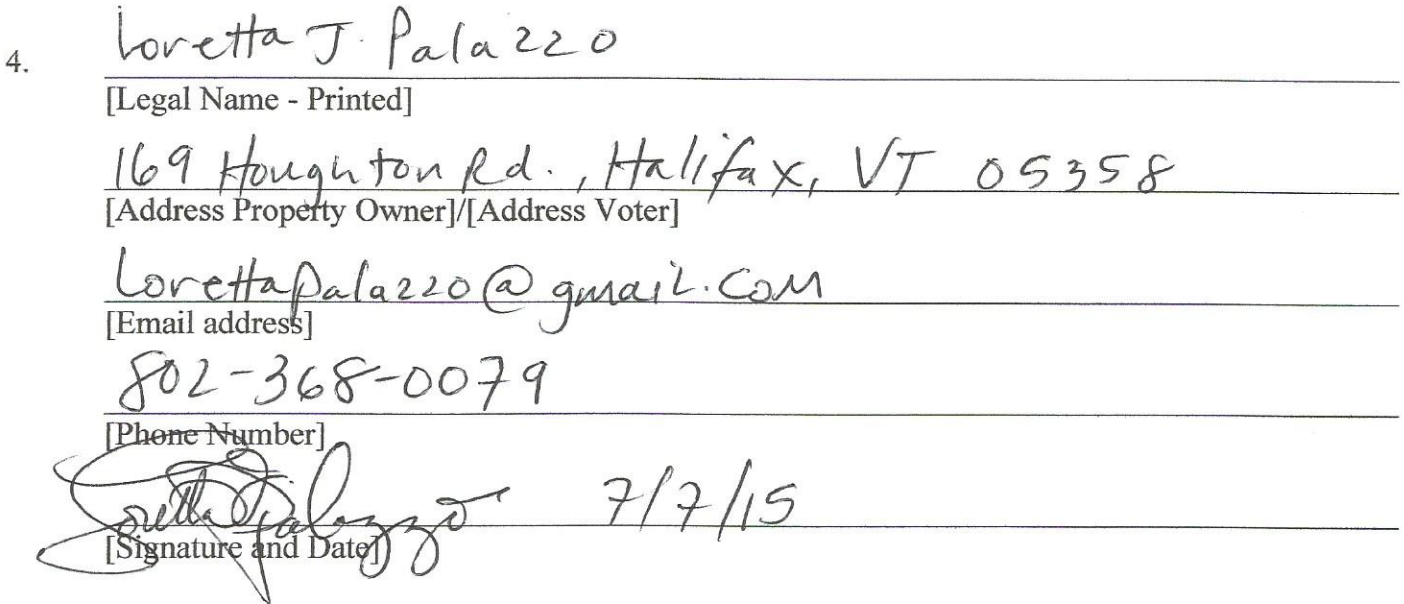 4. Loretta J. Palazzo
[Legal Name - Printed]
169 Houghton Rd., Halifax, VT 05358
[Address Property Owner]/[Address Voter]
Lorettapalazzo@gmail.com
[Email address]
802-368-0079
[Phone Number]
Loretta J Palazzo 7/7/15
[Signature and Date]